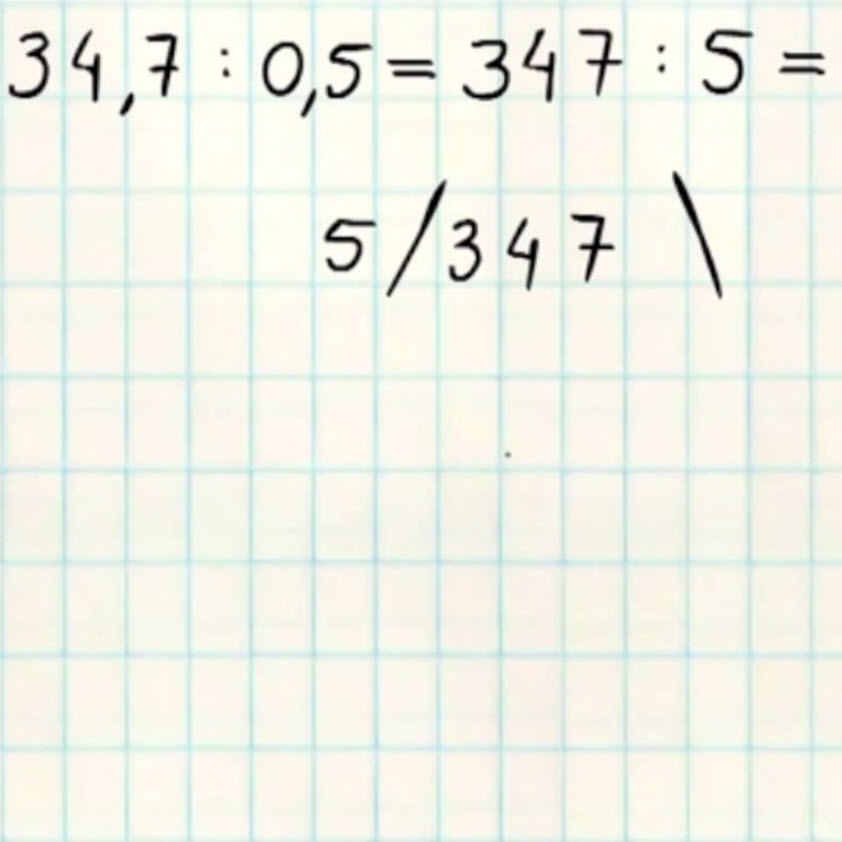 34,7 : 0,5 = 347 : 5 =
5 / 347 \